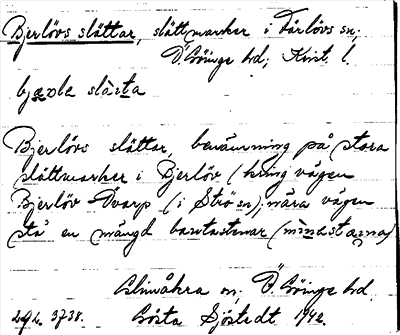 Bjerlövs slättar, slättmarker i Färlövs sn;
Ö. Göinge hd; Krist. l.
Bjerlövs slättar, benämning på stora
slättmarker i Bjerlöv (kring vägen
Bjerlöv - Dvarp (i Strö sn); nära vägen
stå en mängd bautastenar
Glimåkra sn, Ö. Göinge hd.
Gösta Sjöstedt 1942.